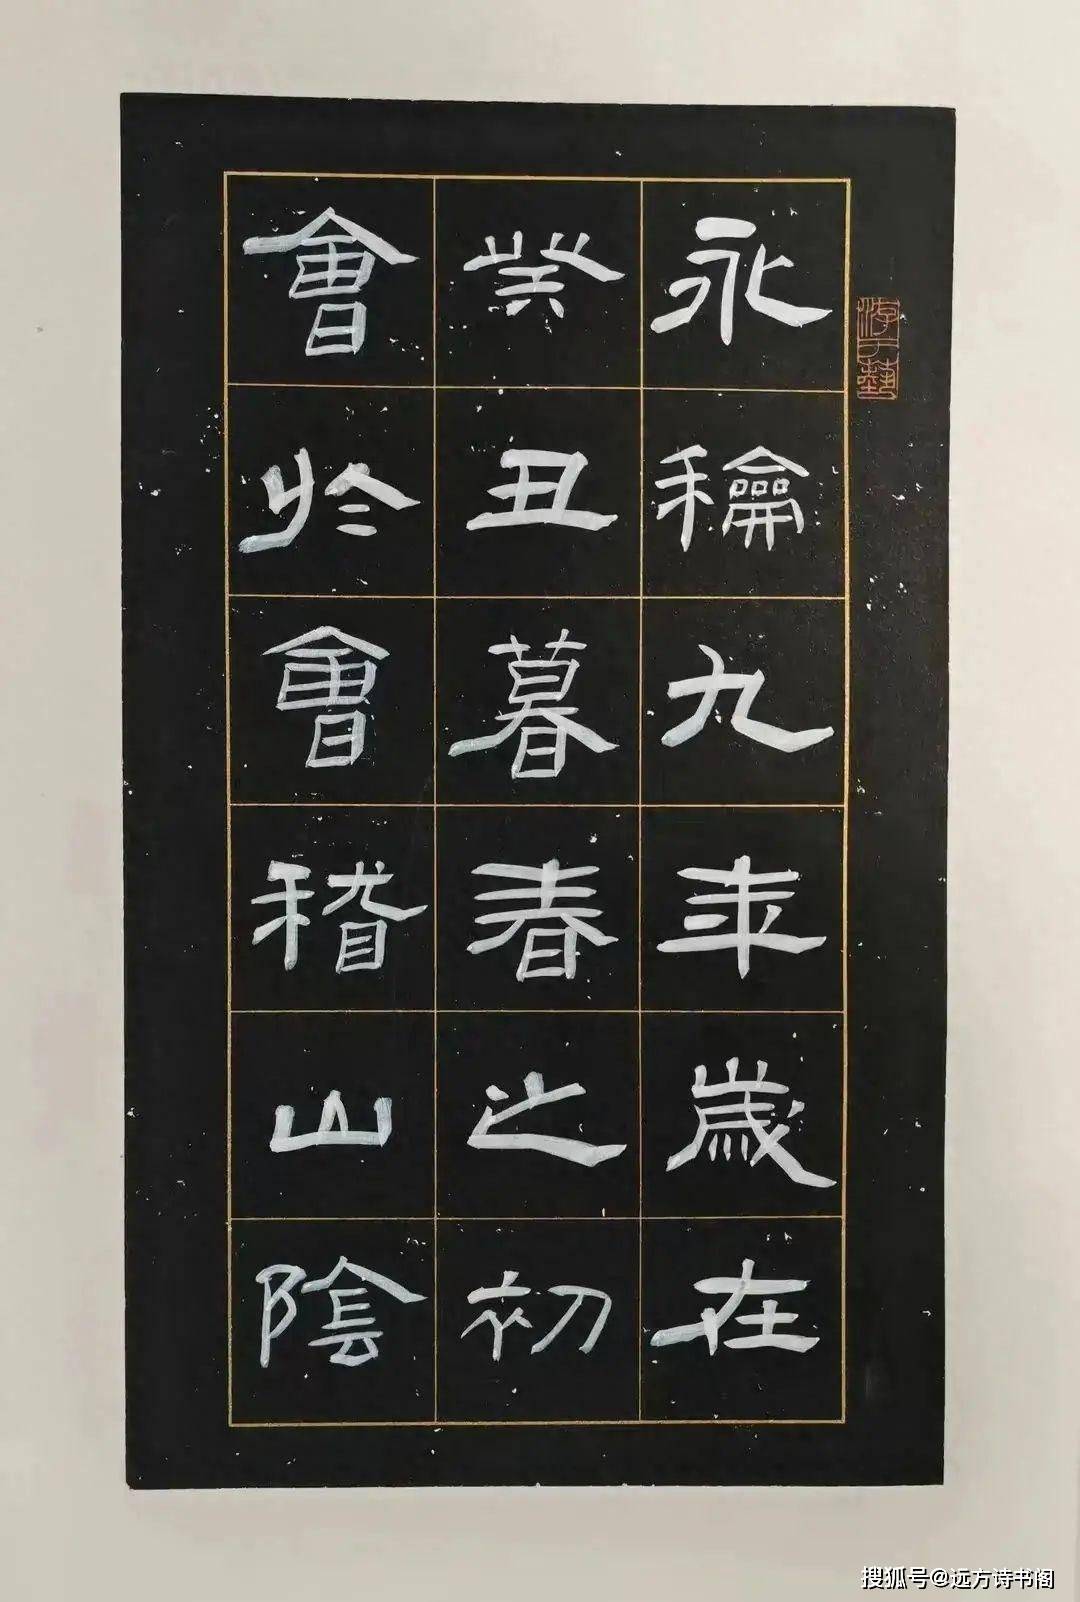 游于藝
永龢九年歲在
癸丑暮春之初
會於會稽山陰
搜狐号@远方诗书阁